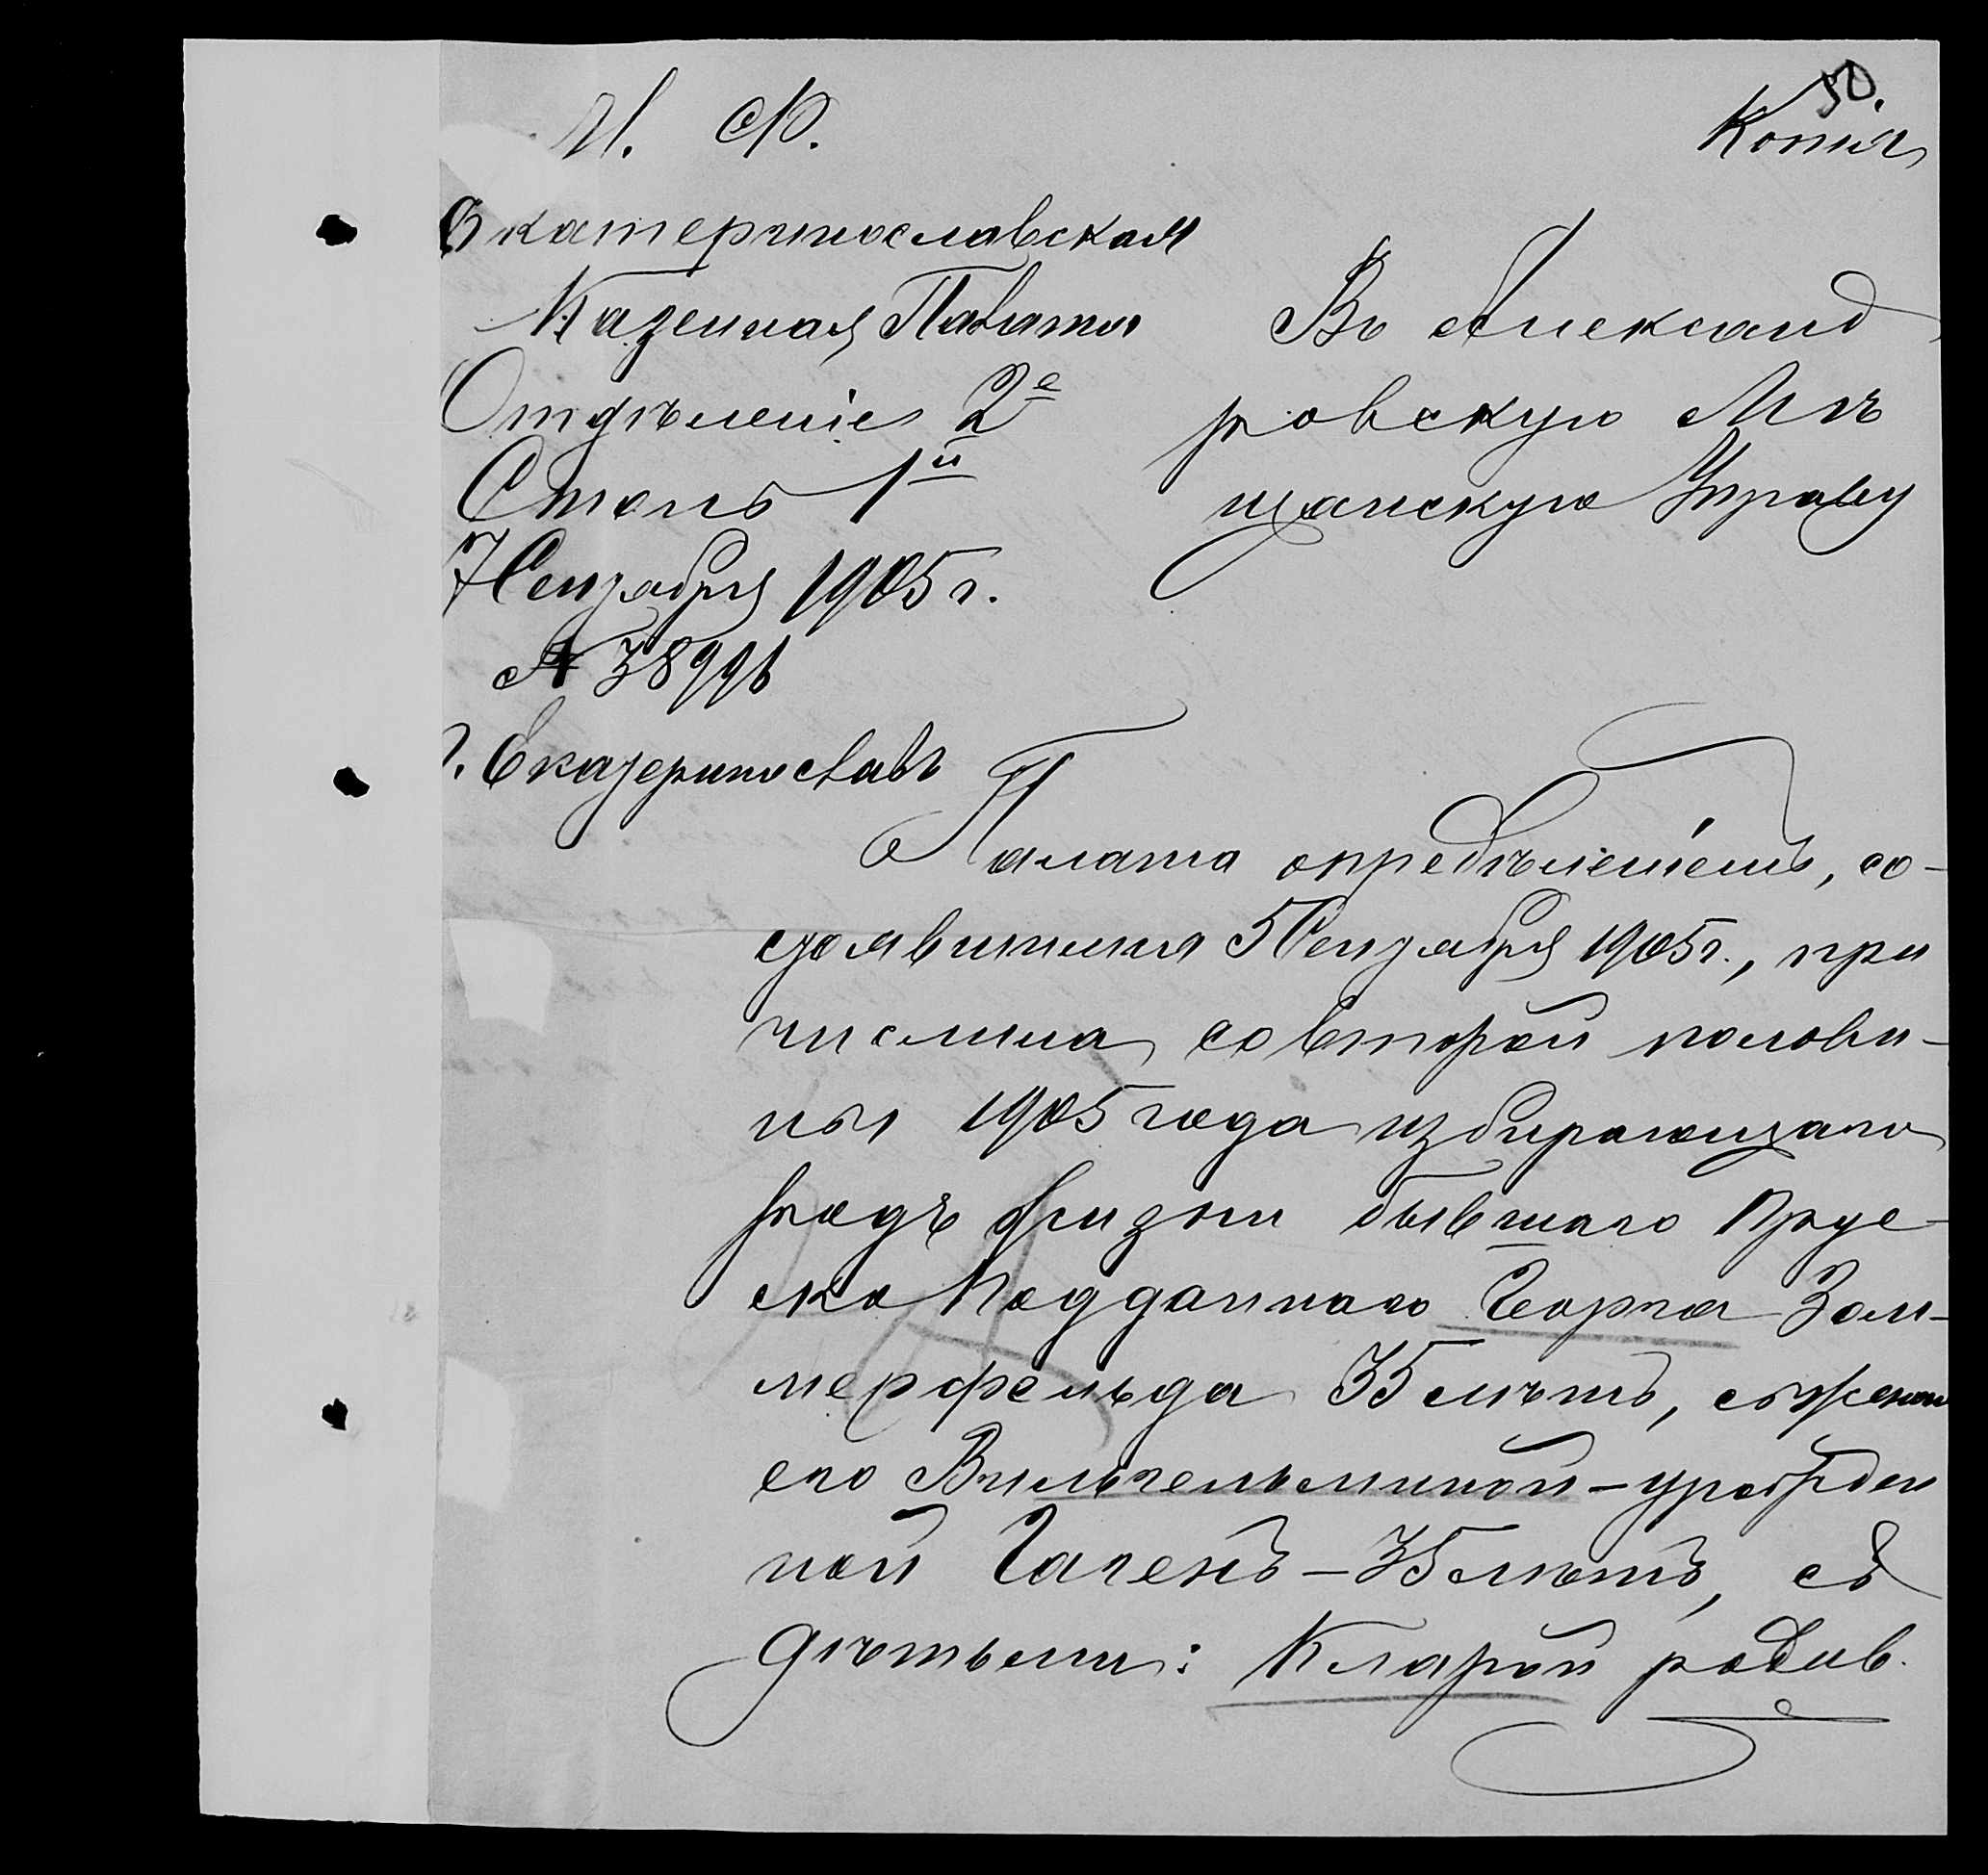 50.
М. Ф.
Копiя
Екатеринославская
Казенная Палата
Отдѣленiе 2е
Столъ 1й
7 Сентября 1905 г.
№ 38996
г. Екатеринославъ
Въ Александ
ровскую Мѣ
щанскую Управу
Палата опредѣленiемъ, со-
стоявшимся 5 Сентября 1905 г., при
числила со второй полови-
ны 1905 года избирающаго
родъ жизни бывшаго прус-
ско подданнаго Георга Зом-
мерфельда 35 лѣтъ, съ женою
его Вильгельминой - урожден
ной Гаген - 35 лѣтъ, съ
дѣтьми: Кларой родив.